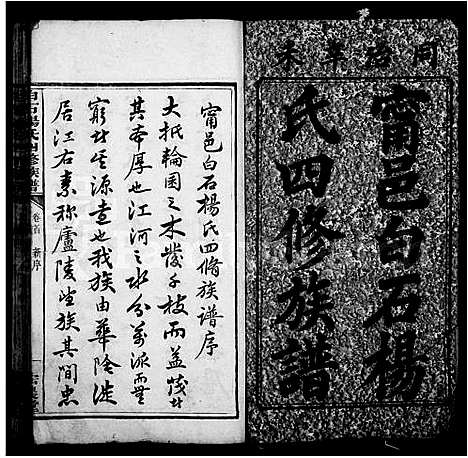 同治辛未
甯邑白石楊
氏四修族譜
甯邑白石楊氏四脩族譜序
大抵輪囷之木發千枝而益茂者
其本厚也江河之水分萬派而無
窮者其源遠也我族由華陰徙
居江右素称廬陵望族其間忠
白石楊氏四修族譜
卷首
新序